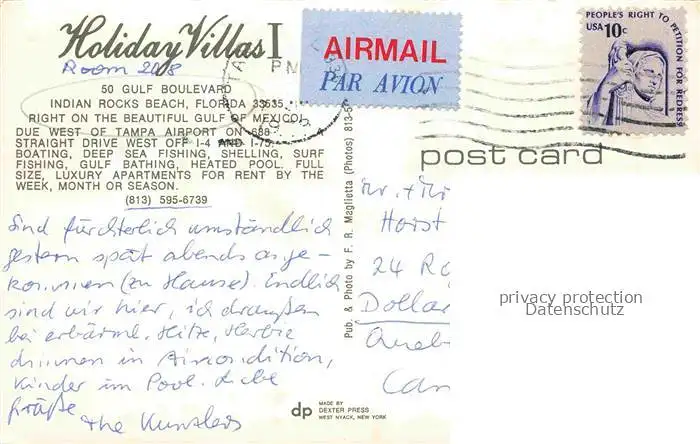 Holiday Villas I
Room 208
50 GULF BOULEVARD
INDIAN ROCKS BEACH, FLORIDA 33535
RIGHT ON THE BEAUTIFUL GULF OF MEXICO
DUE WEST OF TAMPA AIRPORT ON 688
STRAIGHT DRIVE WEST OFF I-4 AND I-75
BOATING, DEEP SEA FISHING, SHELLING, SURF
FISHING, GULF BATHING, HEATED POOL. FULL
SIZE, LUXURY APARTMENTS FOR RENT BY THE
WEEK, MONTH OR SEASON.
(813) 595-6739
Sind fürchterlich umständlich
gestern spät abends ange-
kommen (zu Hause). Endlich
sind wir hier, ich draußen
bei erbärml. Hitze, Herbie
drinnen in Aircondition,
Kinder im Pool.
Grüße
The
MADE BY
dp DEXTER PRESS
WEST NYACK, NEW YORK
Pub. & Photo by F. R. Maglietta (Photos) 813-5
AIRMAIL
PAR AVION
PM
PEOPLE'S RIGHT TO PETITION FOR REDRESS
USA 10c
post card
Mr. + Mr
Horst
24 Ro
Dollar
Queb
Can
privacy protection
Datenschutz